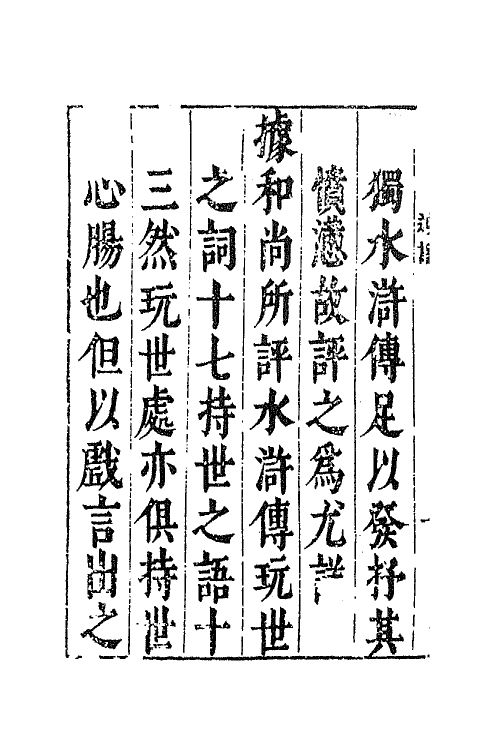 獨水滸傳足以發抒其
憤懣故評之為尤詳
據和尚所評水滸傳玩世
之詞十七持世之語十
三然玩世處亦俱持世
心腸也但以戲言出之